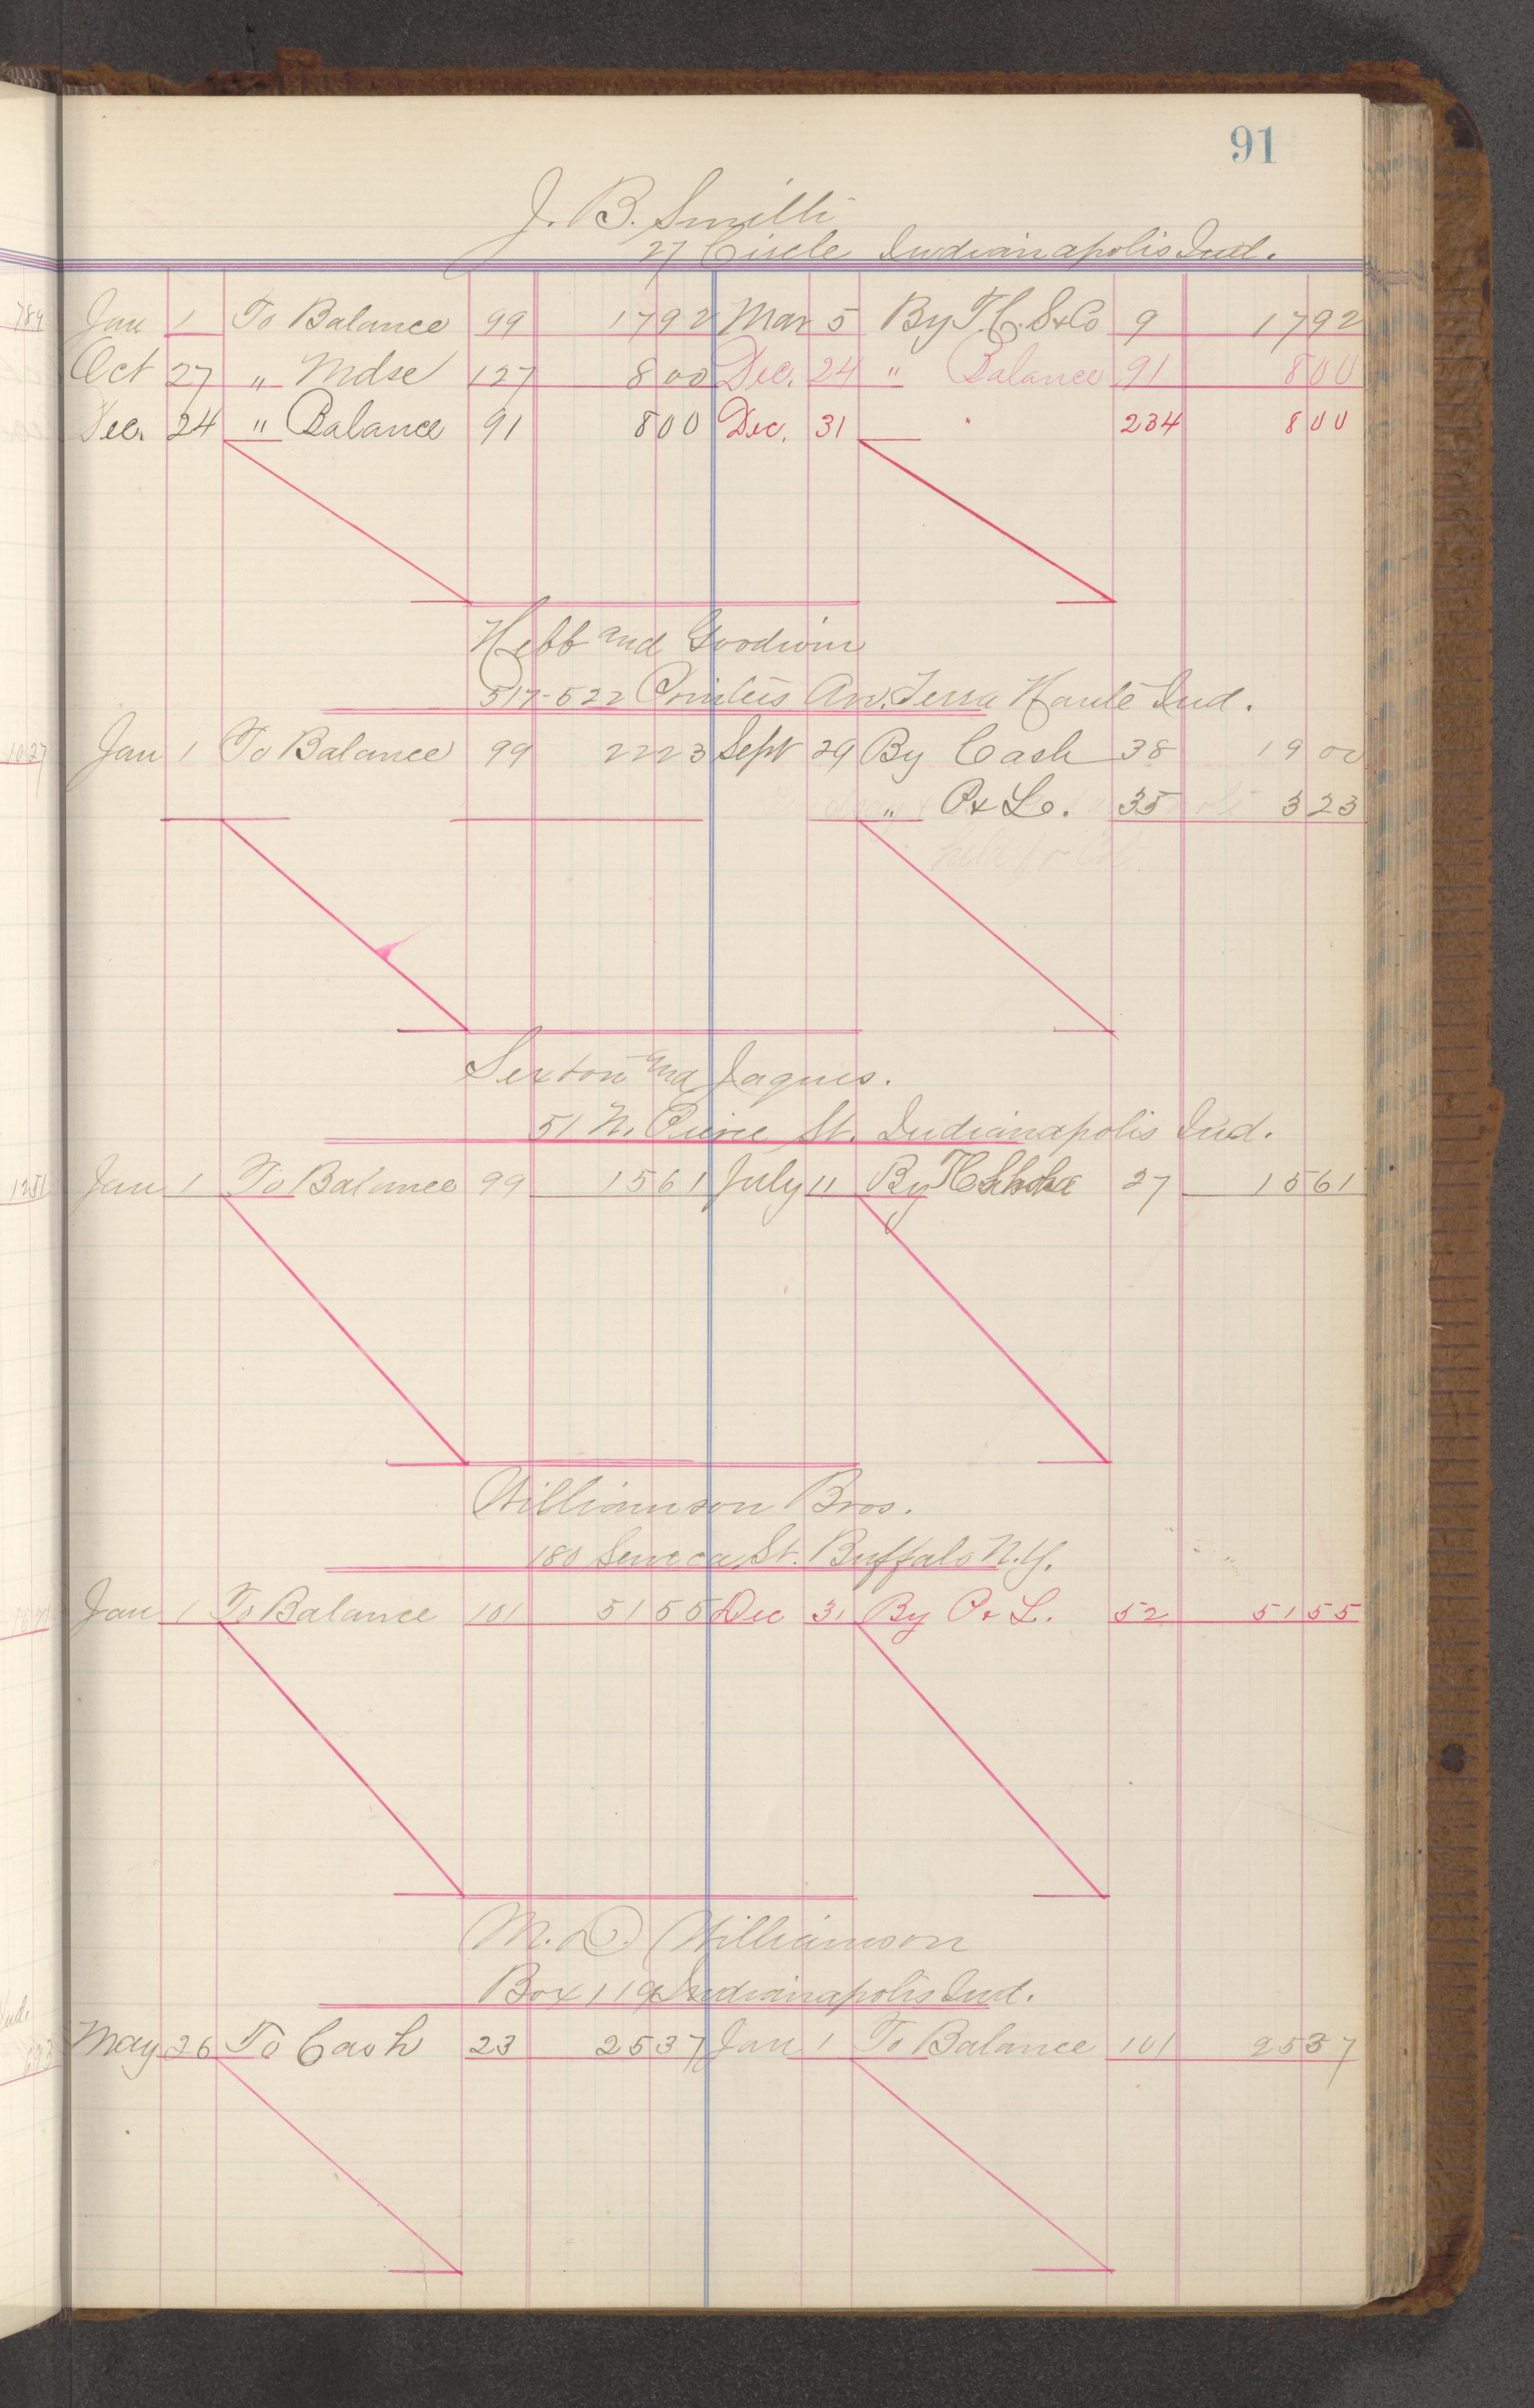 91
J. B. Smith
27 Circle Indianapolis Ind.
Jan 1 To Balance 99 1792 Mar 5 By T. C. S & Co 9 1792
Oct 27 " Mdse 127 8 00 Dec. 24 " Balance 91 8 00
Dec. 24 " Balance 91 8 00 Dec. 31 " 234 8 00
Hebb and Goodwin
517-522 Ave. Terra Haute Ind.
Jan 1 To Balance 99 2223 Sept 29 By Cash 38 19 00
" P & Lo. 35 3 23
Sexton and Jaques.
51 N. St. Indianapolis Ind.
Jan 1 To Balance 99 1561 July 11 By 27 1561
Williamson Bros.
180 Seneca St. Buffalo N.Y.
Jan 1 To Balance 101 5155 Dec 31 By P & L. 52 5155
M. D. Williamson
Box 119 Indianapolis Ind.
May 26 To Cash 23 2537 Jan 1 To Balance 101 2537